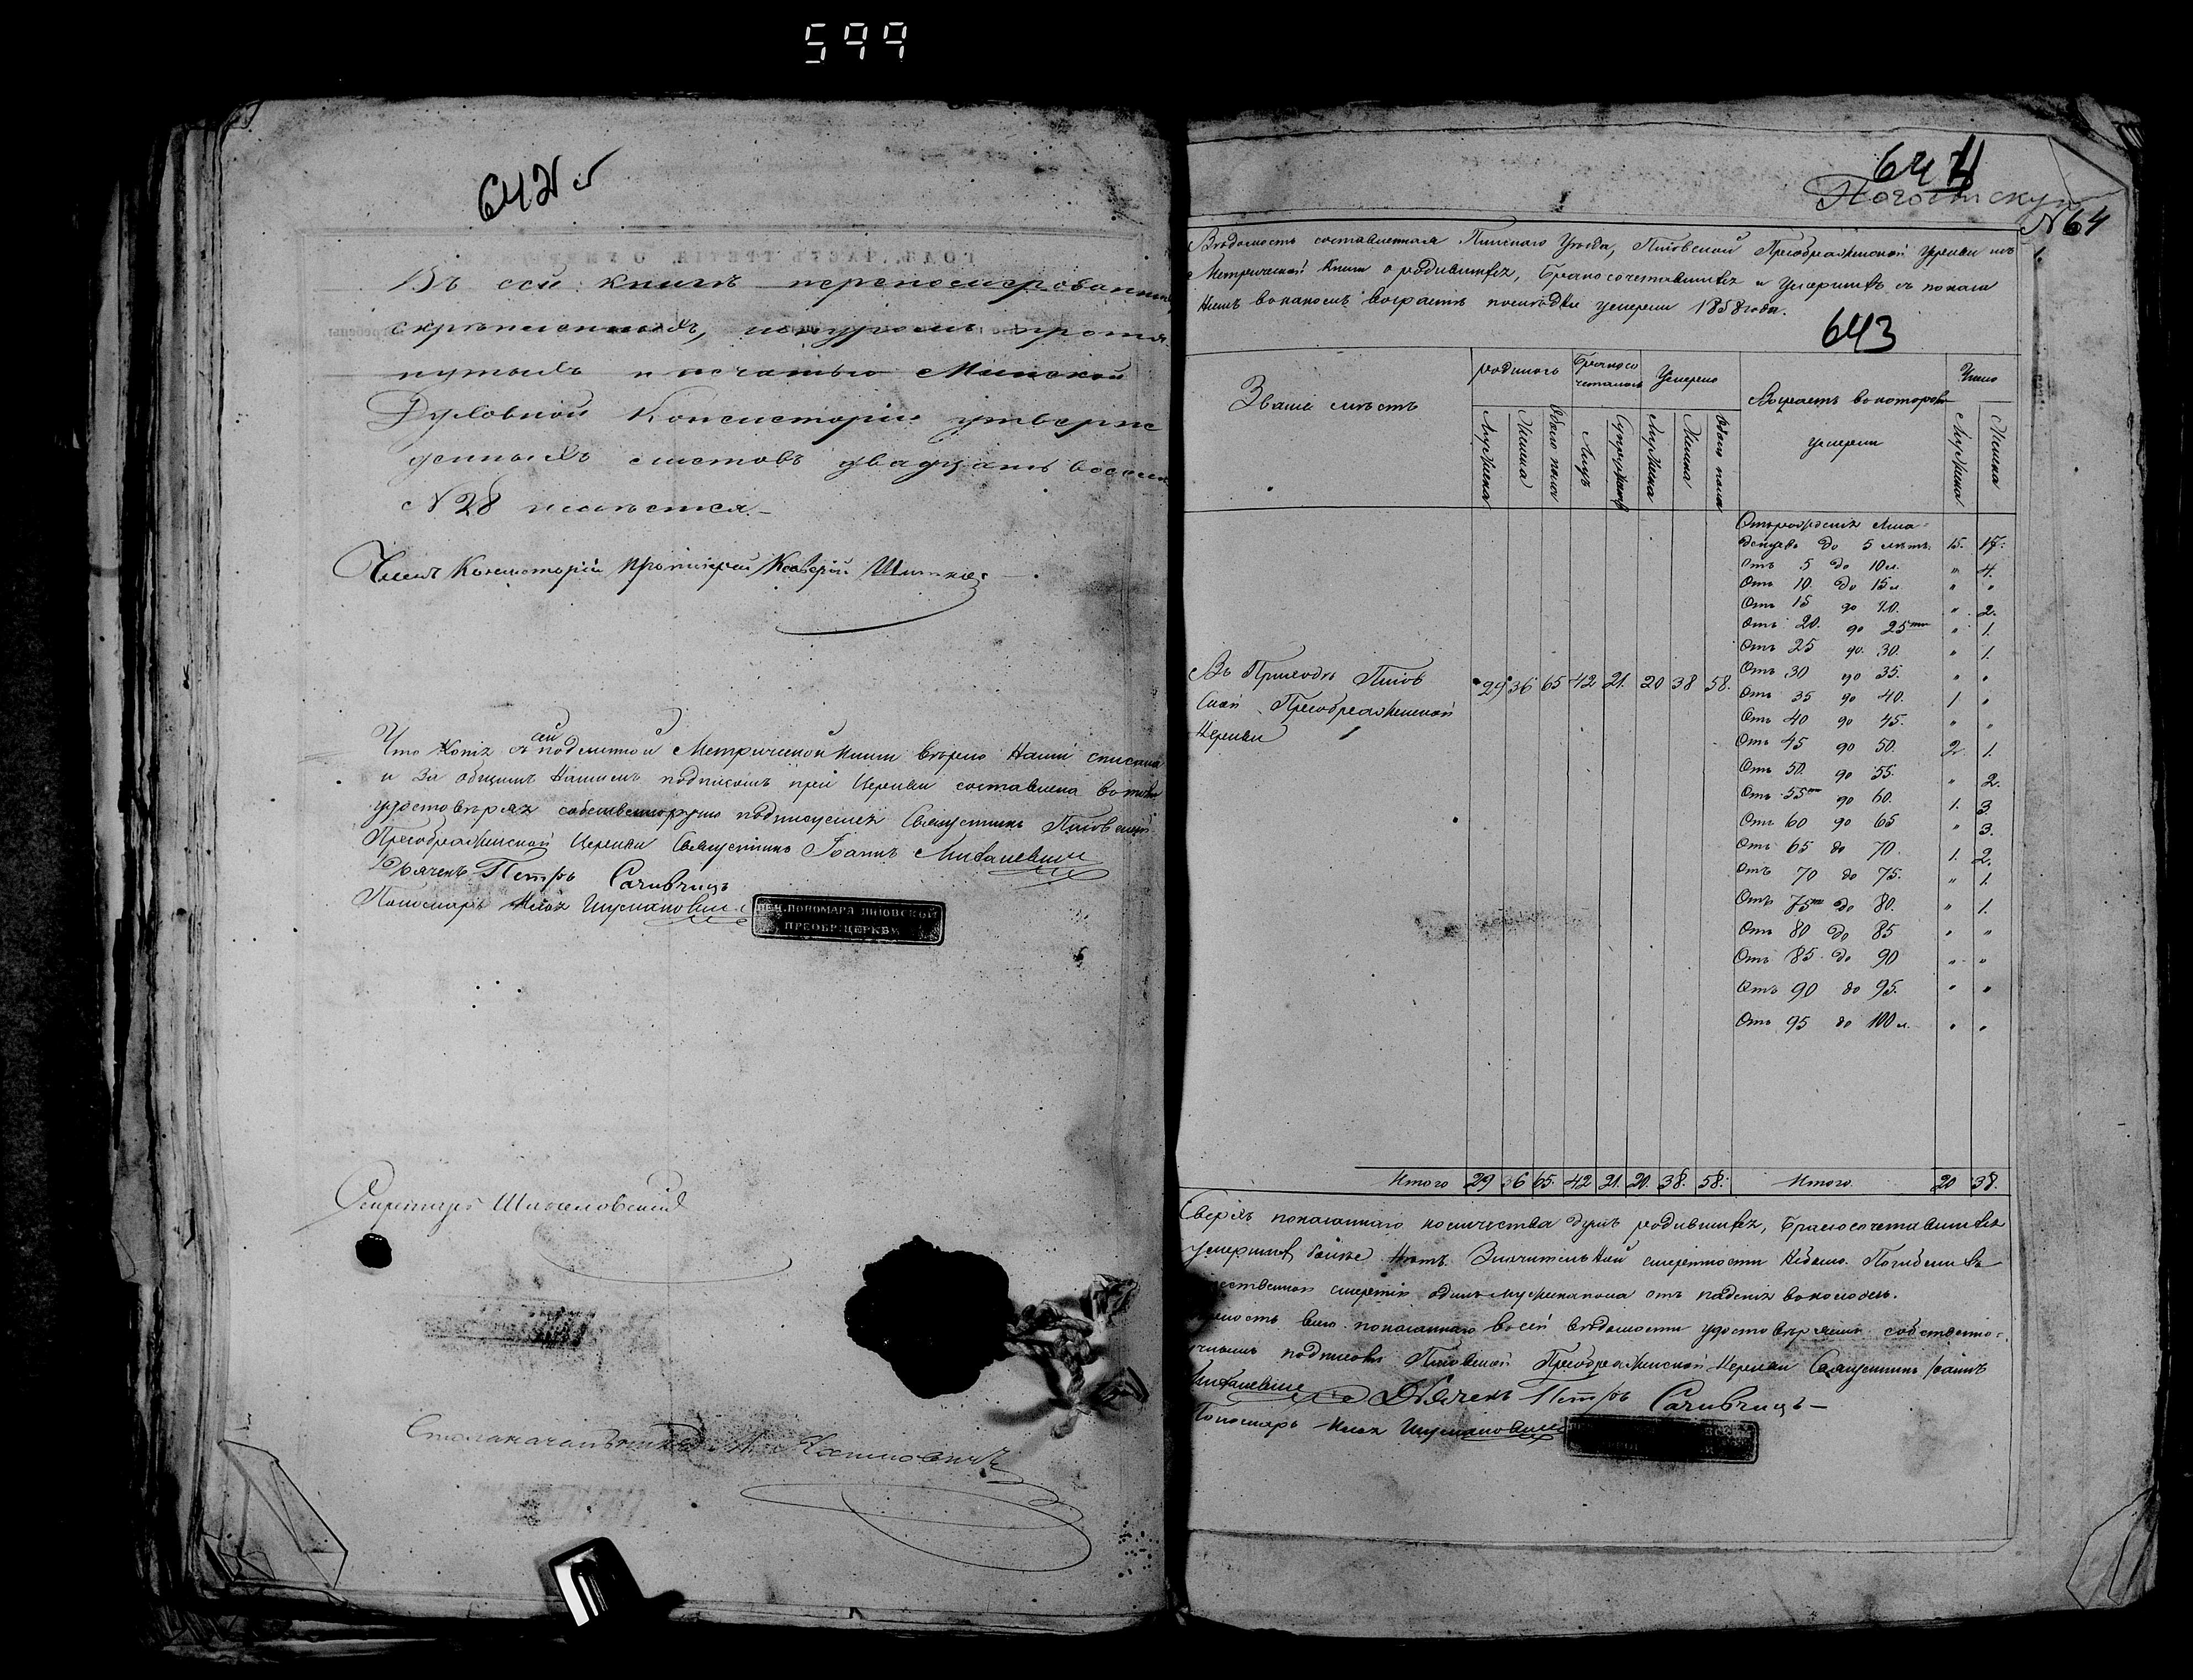 599
642 об
Въ сей книгѣ перенумерованныхъ
скрѣпленныхъ, шнуромъ протя-
нутыхъ и печатью Минской
Духовной Консисторіи утверж
денныхъ листовъ двадцать восемь
N 28 имѣется.
Членъ Консисторіи Протоіерей
Что Копія сія съ подлинной Метрической книги вѣрно Нами списана
и За общимъ Нашимъ подписомъ при Церкви составлена въ томъ
удостовѣряя собственноручно подписуемся Священникъ Піовской
Преображенской Церкви Священникъ Іоаннъ Михалевичъ
Дьячекъ Петръ
Пономарь Илья
ПЕЧ. ПОНОМАРЯ ПІОВСКОЙ
ПРЕОБР. ЦЕРКВИ
Секретарь
Столоначальникъ
644
Погостскую
N 64
Вѣдомость составленная Пинскаго Уѣзда, Піовской Преображенской Церкви изъ
Метрической Книги о родившихся, бракосочетавшихся и Умершихъ съ показа
ніемъ въ какомъ возрастѣ послѣдніе умерли 1858 года.
643
Званіе мѣстъ
родилось
Бракосо
четалось
Умерло
Возрастъ въ которомъ
умерли
Число
Мужеска
Женска
Обоего пола
Лицъ
Супружествъ
Мужеска
Женска
Обоего пола
Мужеска
Женска
Отъ рожденія Мла
денцевъ до 5 лѣтъ 15. 17.
Отъ 5 до 10 л. " 4.
Отъ 10. до 15 л. " "
Отъ 15 до 20. " 2.
Отъ 20. до 25 " 1.
Отъ 25 до 30. " 1.
Отъ 30 до 35. " "
Отъ 35 до 40. 1 "
Отъ 40 до 45. " "
Отъ 45 до 50. 2 1.
Отъ 50. до 55. " 2.
Отъ 55 до 60. 1. 3.
Отъ 60 до 65 " 3.
Отъ 65 до 70. 1. 2.
Отъ 70 до 75. " 1.
Отъ 75 до 80. " 1.
Отъ 80 до 85 " "
Отъ 85. до 90 " "
Отъ 90 до 95. " "
Отъ 95 до 100 л. " "
Въ Приходѣ Піов
ской Преображенской
Церкви
29 36 65 42 21. 20 38 58.
Итого 29 36 65. 42 21. 20. 38. 58. Итого 20 38.
Сверхъ показаннаго количества душъ родившихся, бракосочетавшихся
умершихъ болѣе Нѣтъ. Значительной смертности Небыло. Погибшихъ
ственной смертію одинъ мужеска пола отъ паденія въ колодезь.
показаннаго въ сей вѣдомости удостовѣряемъ собственно-
ручнымъ подписомъ Піовской Преображенской Церкви Священникъ Іоаннъ
Михалевичъ Дьячекъ Петръ
Пономарь Илья